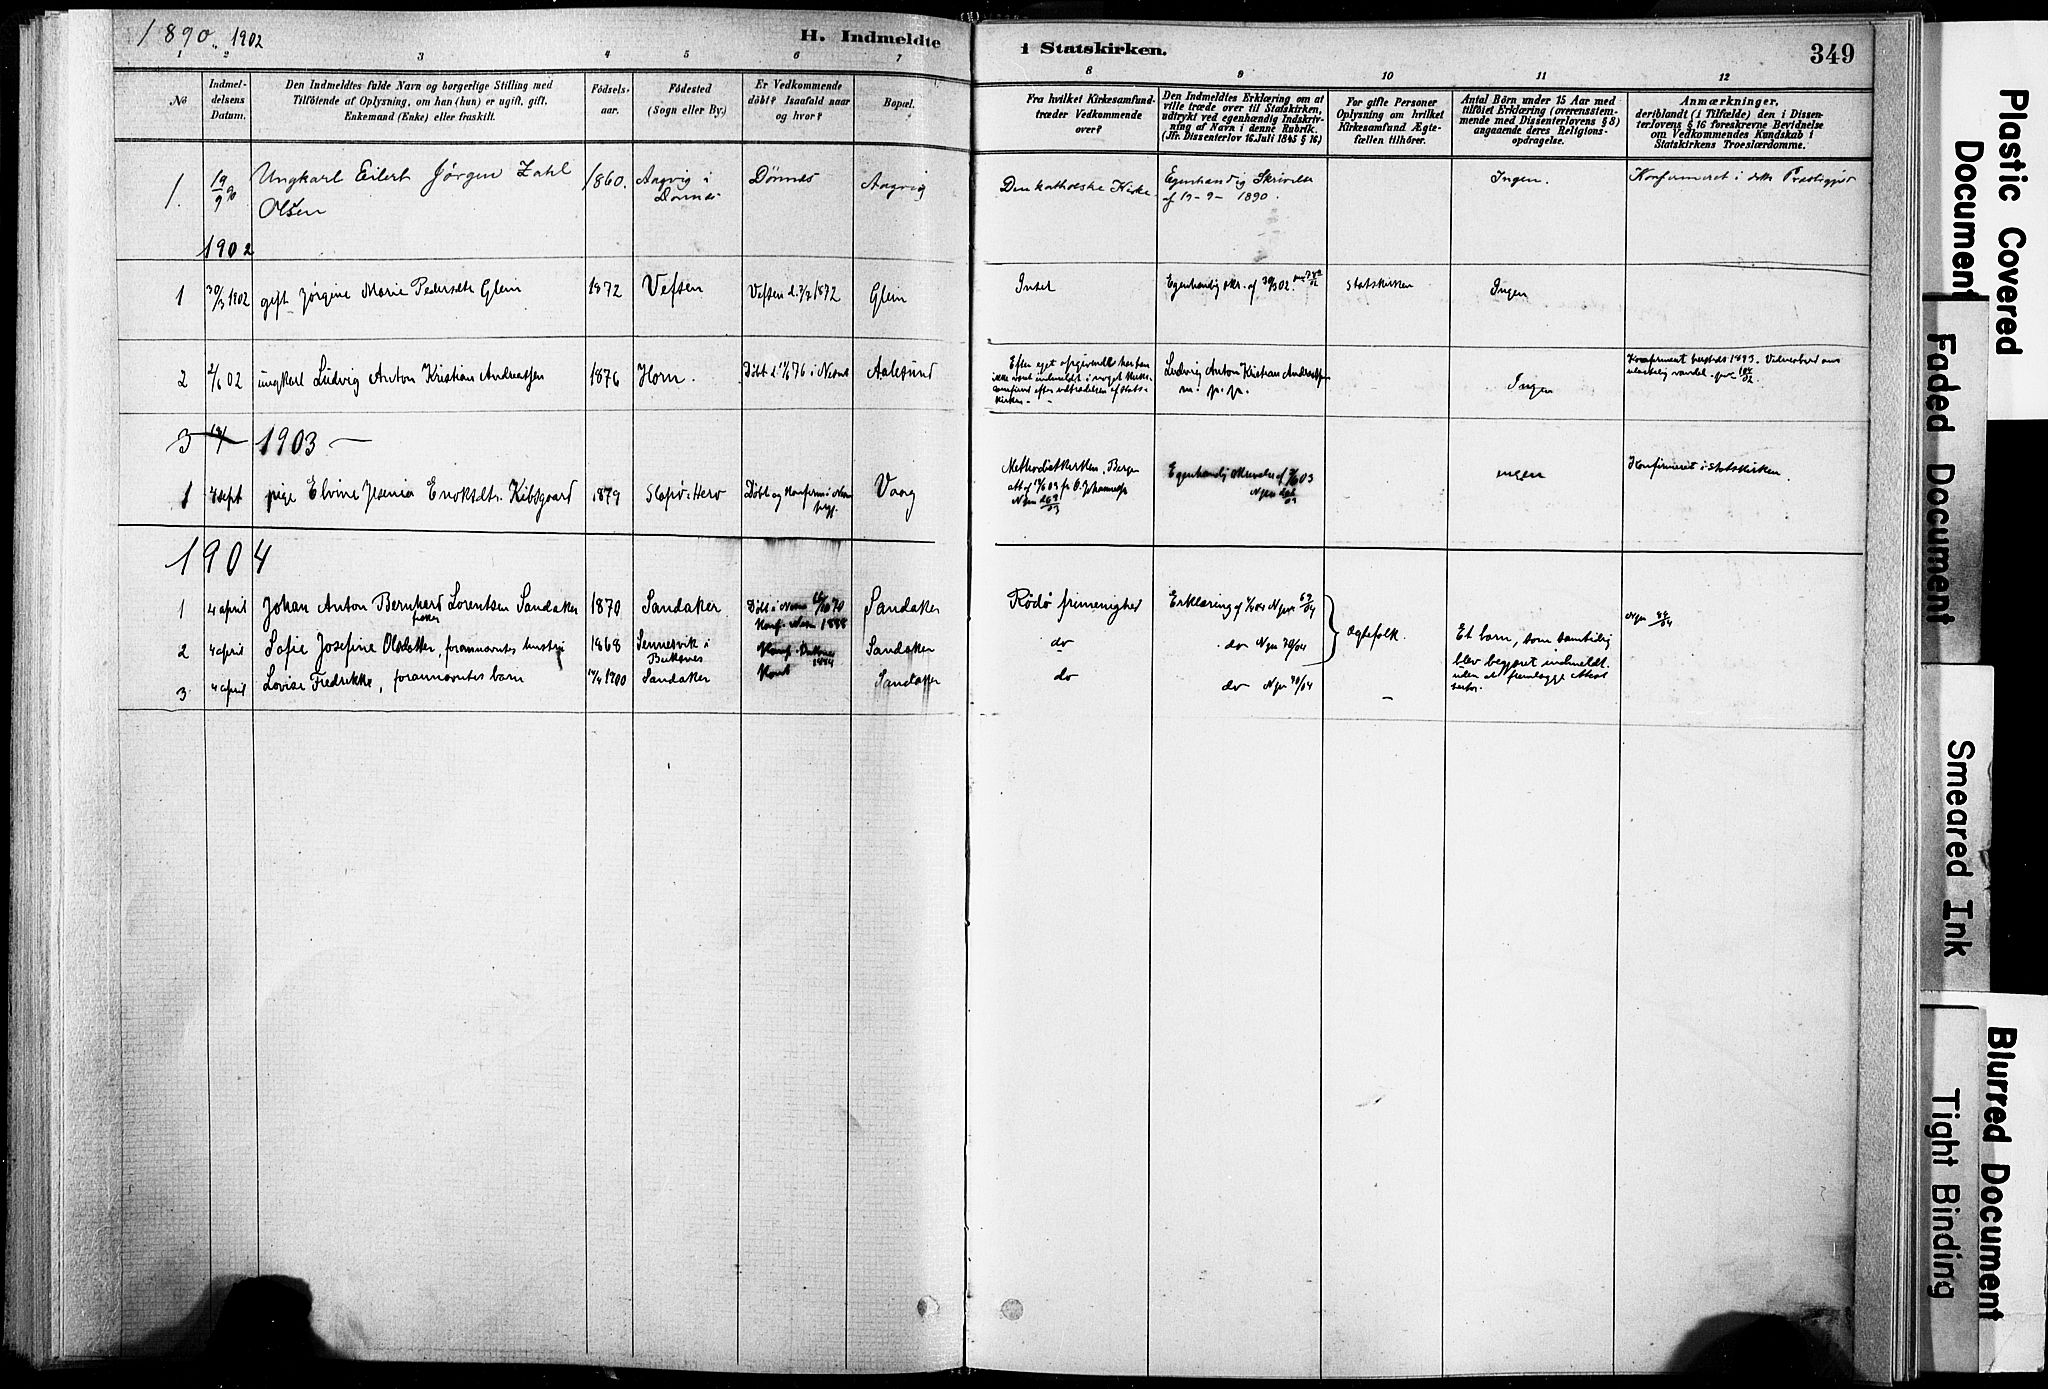 1890. 1902
H. Indmeldte i Statskirken.
349
1 2 3 4 5 6 7 8 9 10 11 12
No
Indmeldelsens Datum.
Den Indmeldtes fulde Navn og borgerlige Stilling med
Tilföiende af Oplysning, om han (hun) er ugift, gift,
Enkemand (Enke) eller fraskilt.
Födselsaar.
Födested
(Sogn eller By.)
Er Vedkommende
döbt? Isaafald naar
og hvor?
Bopæl.
Fra hvilket Kirkesamfund
træder Vedkommende
over?
Den Indmeldtes Erklæring om at
ville træde over til Statskirken,
udtrykt ved egenhændig Indskrivning
af Navn i denne Rubrik.
(Jfr. Dissenterlov 16 Juli 1845 § 16)
For gifte Personer
Oplysning om hvilket
Kirkesamfund Ægtefællen
tilhörer.
Antal Börn under 15 Aar med
tilföiet Erklæring (overensstemmende
med Dissenterlovens § 8)
angaaende deres Religionsopdragelse.
Anmærkninger,
deriblandt (i Tilfælde) den i Dissenterlovens
§ 16 foreskrevne Bevidnelse
om Vedkommendes Kundskab i
Statskirkens Troeslærdomme.
1. 19/9 90 Ungkarl Eilert Jørgen Zahl Olsen 1860. Aagvig i Dönnes Dönnes Aagvig Den katholske Kirke Egenhændig Skrivelse af 19-9-1890. Ingen. Konfirmeret i dette Præstegjeld
1902
1 30/3 1902 gift Jørgine Marie Pedersdtr Glein 1872 Vefsen Vefsen 1872 Glein Intet Egenhændig skr. af 30/3 02. Statskirken Ingen
2 2/6 02 ungkarl Ludvig Anton Kristian Andreassen 1876 Horn. Döbt 76 i Nesne Aalesund Efter eget opgivende har han ikke været indmeldt i noget kirkesamfund efter udtrædelsen af Statskirken. Ludvig Anton Kristian Andreassen m. p. p. Ingen Konfirmeret 1893.
3 1903
1 4 sept pige Elvine Jesenia Enoksdtr. Kibsgaard 1879 Slapø i Herø Döbt og konfirm i Vaag Methodistkirken, Bergen Egenhændig skrivelse af 03 ingen Konfirmeret i Statskirken
1904
1 4 april Johan Anton Bernhard Lorentsen Sandaker fisker 1870 Sandaker Döbt i Nesne 70 Konf. Nesne 1888 Sandaker Rödö frimenighed Erklæring af 04 Njr 69/04 ægtefolk. Et barn, som samtidig blev begjæret indmeldt uden at fremlægge
2 4 april Sofie Josefine Olsdatter, forannævntes hustru 1868 Sennesvik i Buksnes Konf. Buksnes 1884 Sandaker do do Njr 70/04
3 4 april Lovise Fredrikke, forannævntes barn 1900 Sandaker Sandaker do do Njr 70/04 –
Plastic Covered Document
Faded Document
Smeared Ink
Blurred Document
Tight Binding